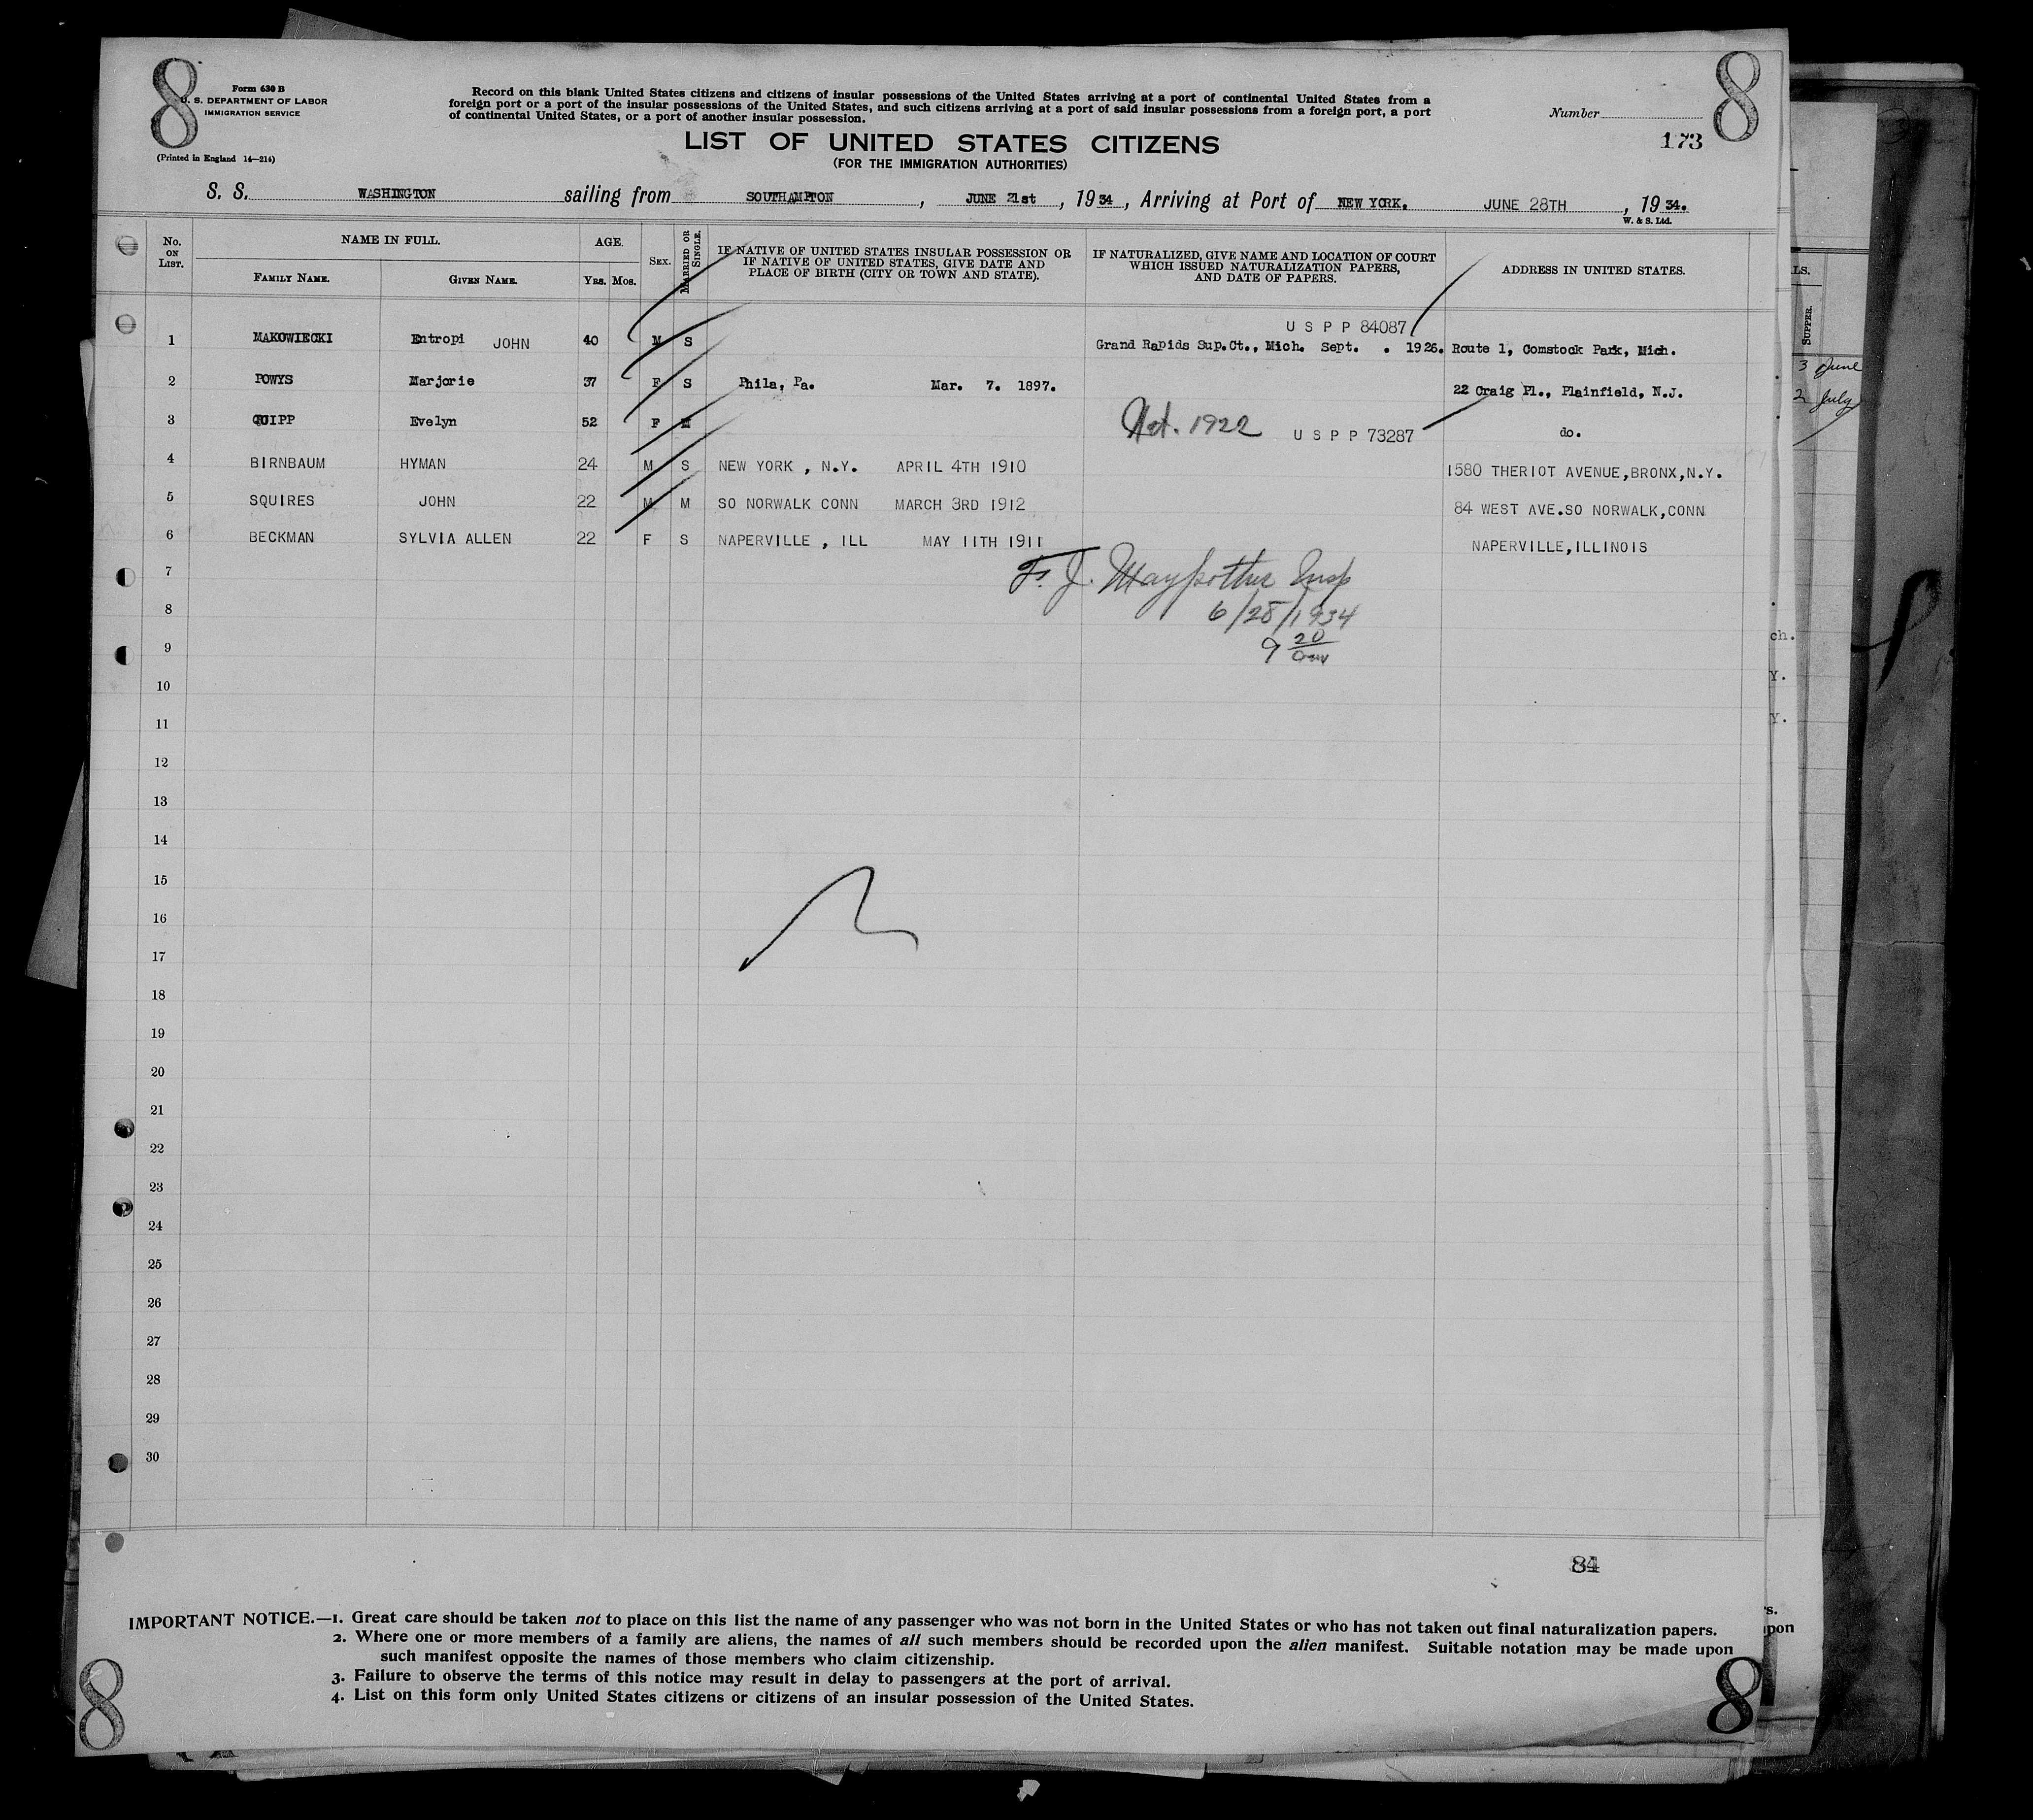 8
8
Form 630 B
U. S. DEPARTMENT OF LABOR
IMMIGRATION SERVICE
(Printed in England 14—214)
Record on this blank United States citizens and citizens of insular possessions of the United States arriving at a port of continental United States from a
foreign port or a port of the insular possessions of the United States, and such citizens arriving at a port of said insular possessions from a foreign port, a port
of continental United States, or a port of another insular possession.
Number
173
LIST OF UNITED STATES CITIZENS
(FOR THE IMMIGRATION AUTHORITIES)
S. S. WASHINGTON sailing from SOUTHAMPTON, JUNE 21st, 1934, Arriving at Port of NEW YORK. JUNE 28TH, 1934.
W. & S. Ltd.
No. ON LIST. NAME IN FULL. FAMILY NAME. GIVEN NAME. AGE. YRS. MOS. SEX. MARRIED OR SINGLE. IF NATIVE OF UNITED STATES INSULAR POSSESSION OR IF NATIVE OF UNITED STATES, GIVE DATE AND PLACE OF BIRTH (CITY OR TOWN AND STATE). IF NATURALIZED, GIVE NAME AND LOCATION OF COURT WHICH ISSUED NATURALIZATION PAPERS, AND DATE OF PAPERS. ADDRESS IN UNITED STATES.
U S P P 84087
1 MAKOWIECKI Entropi JOHN 40 M S Grand Rapids Sup.Ct., Mich. Sept. . 1926. Route 1, Comstock Park, Mich.
2 POWYS Marjorie 37 F S Phila, Pa. Mar. 7. 1897. 22 Craig Pl., Plainfield, N.J.
3 QUIPP Evelyn 52 F M Nat. 1922 U S P P 73287 do.
4 BIRNBAUM HYMAN 24 M S NEW YORK , N.Y. APRIL 4TH 1910 1580 THERIOT AVENUE,BRONX,N.Y.
5 SQUIRES JOHN 22 M M SO NORWALK CONN MARCH 3RD 1912 84 WEST AVE.SO NORWALK,CONN
6 BECKMAN SYLVIA ALLEN 22 F S NAPERVILLE , ILL MAY 11TH 1911 NAPERVILLE,ILLINOIS
7 F. J. Maypother Insp
8 6/28/1934
9 9 20 am
10
11
12
13
14
15
16
17
18
19
20
21
22
23
24
25
26
27
28
29
30
84
IMPORTANT NOTICE.—1. Great care should be taken not to place on this list the name of any passenger who was not born in the United States or who has not taken out final naturalization papers.
2. Where one or more members of a family are aliens, the names of all such members should be recorded upon the alien manifest. Suitable notation may be made upon
such manifest opposite the names of those members who claim citizenship.
3. Failure to observe the terms of this notice may result in delay to passengers at the port of arrival.
4. List on this form only United States citizens or citizens of an insular possession of the United States.
8
8
LS.
SUPPER.
3 June
2 July
ch.
Y.
Y.
rs.
upon